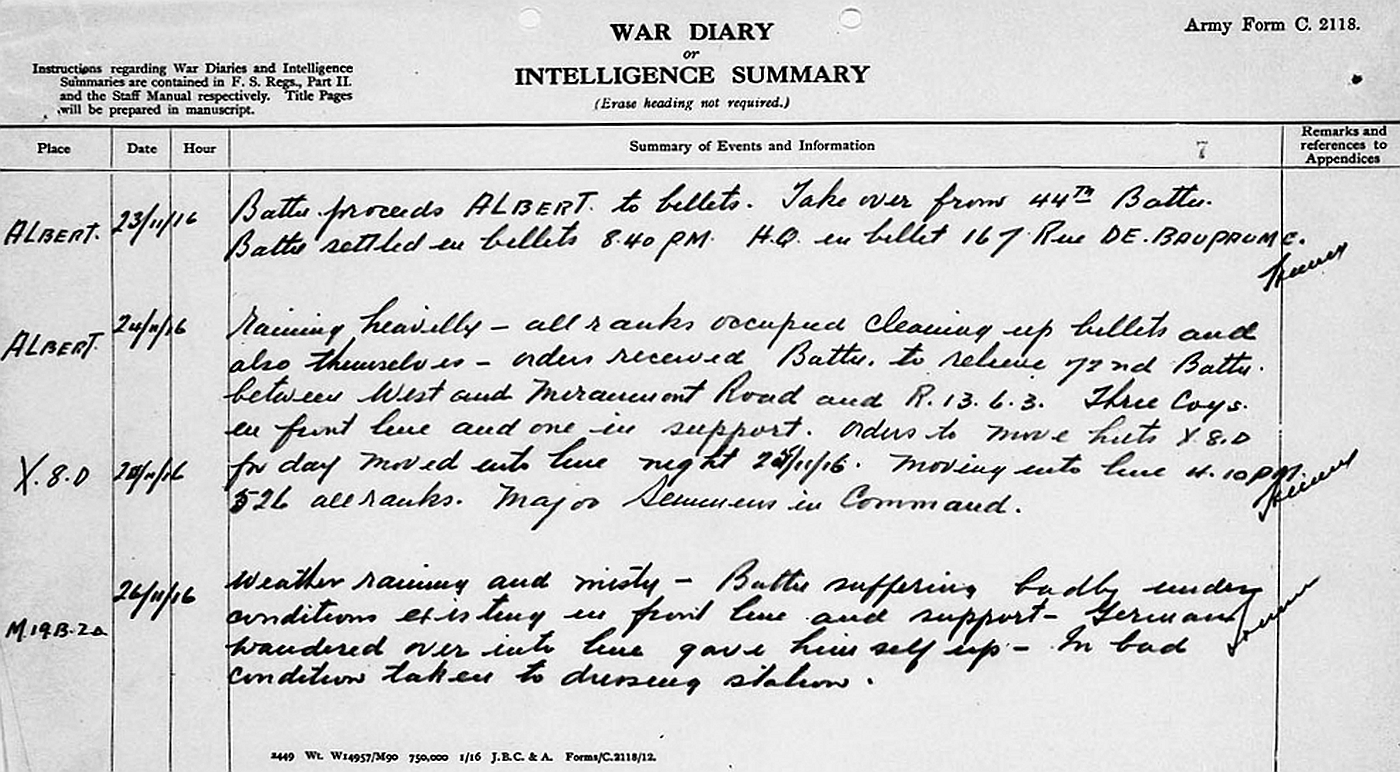 WAR DIARY
or
INTELLIGENCE SUMMARY
(Erase heading not required.)
Army Form C. 2118.
Instructions regarding War Diaries and Intelligence
Summaries are contained in F. S. Regs., Part II.
and the Staff Manual respectively. Title Pages
will be prepared in manuscript.
Place Date Hour Summary of Events and Information 7 Remarks and references to Appendices
ALBERT. 23/11/16 Battn proceeds ALBERT. to billets. Take over from 44TH Battn.
Battn settled in billets 8.40 PM. H.Q. in billet 167 Rue DE. BAUPAUME.
ALBERT. 24/11/16 Raining heavilly – all ranks occupied cleaning up billets and
also themselves – orders received Battn. to relieve 72nd Battn.
between West and Miraumont Road and R. 13. 6. 3. Three Coys.
in front line and one in support. Orders to move huts X.8.D
X.8.D 25/11/16 for day moved into line night 25/11/16. Moving into line 4.10 PM.
526 all ranks. Major Semmens in Command.
M.19.B.2a 26/11/16 Weather raining and misty – Battn suffering badly under
conditions existing in front line and support – German
wandered over into line gave him self up – In bad
condition taken to dressing station.
2449 Wt. W14957/M90 750,000 1/16 J.B.C. & A. Forms/C.2118/12.